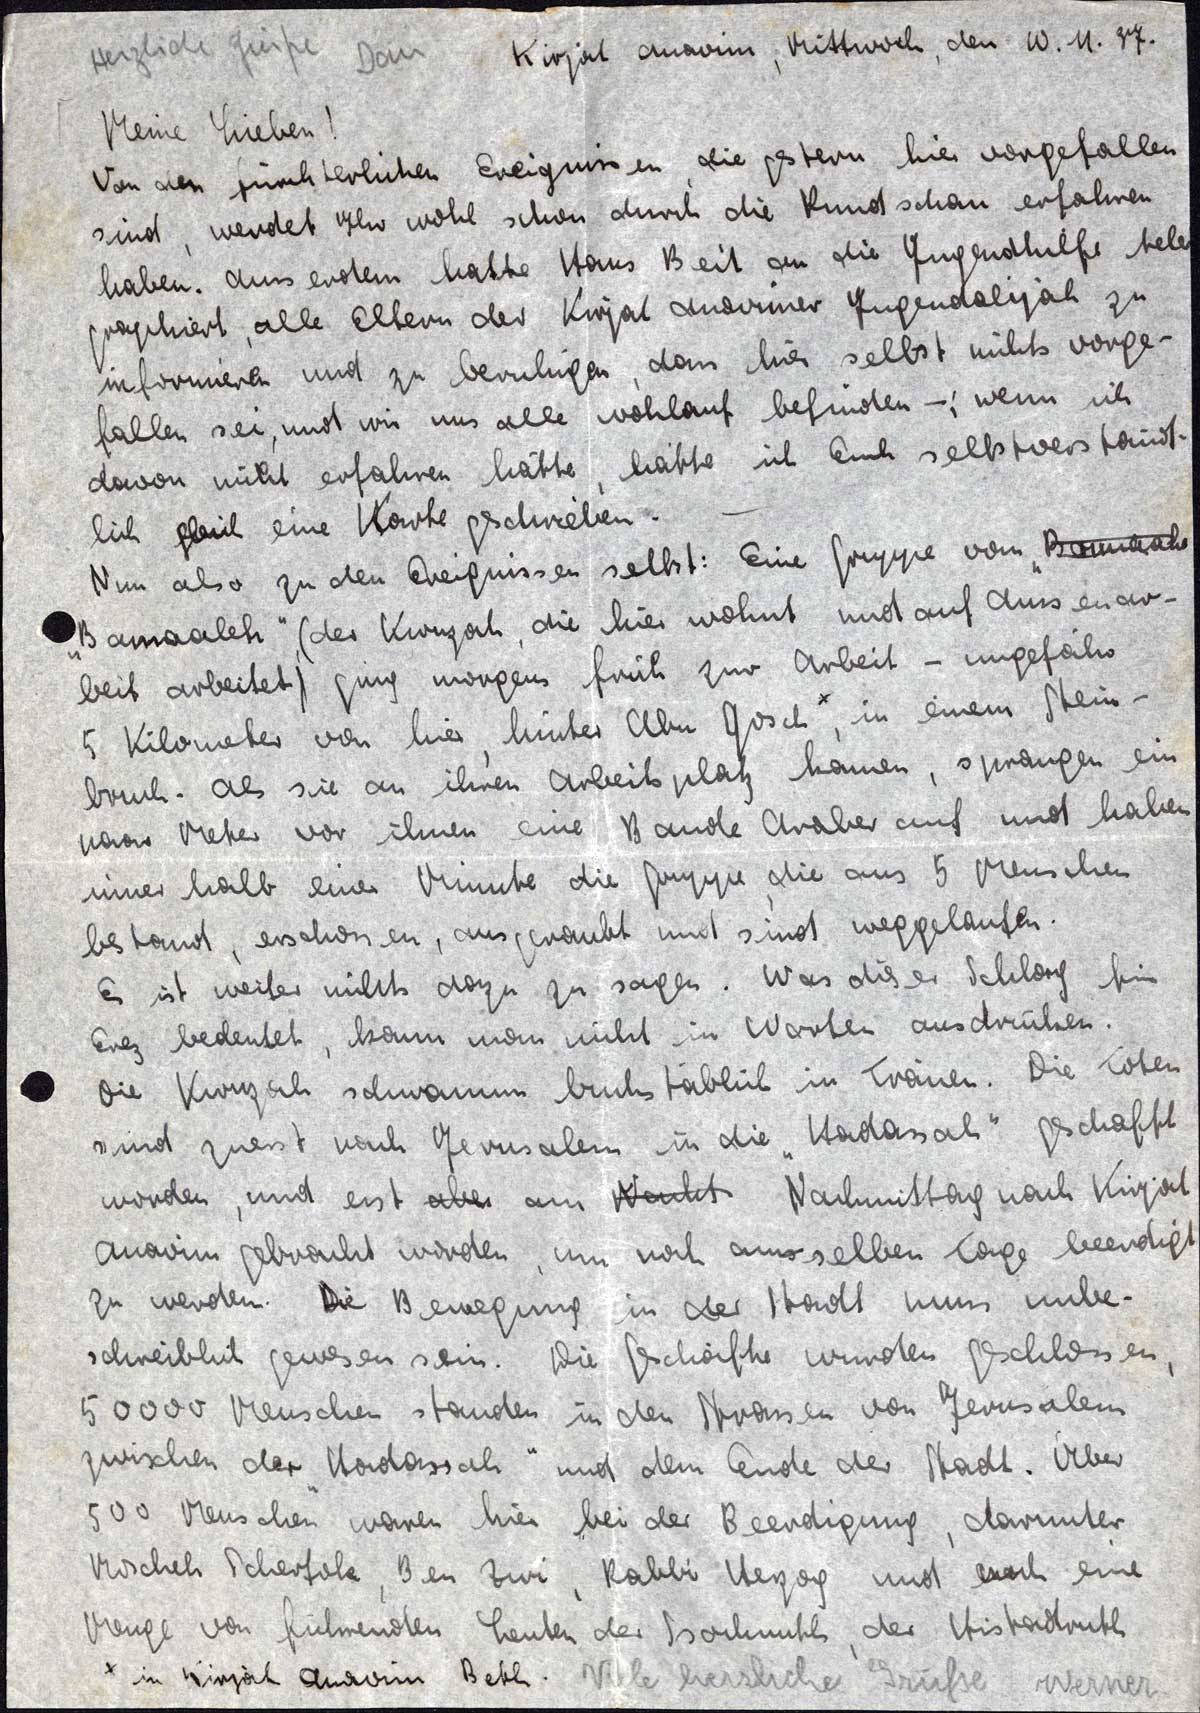 Herzliche Grüße Dan
Kirjat Anavim, Mittwoch, den 10.11.37.
Meine Lieben!
Von den fürchterlichen Ereignissen, die gestern hier vorgefallen
sind, werdet Ihr wohl schon durch die Rundschau erfahren
haben. Ausserdem hatte Hans Beit an die Jugendhilfe tele
graphiert, alle Eltern der Kirjat Anavimer Jugendalijah zu
informieren und zu beruhigen, dass hier selbst nichts vorge-
fallen sei, und wir uns alle wohlauf befinden -; wenn ich
davon nicht erfahren hätte, hätte ich Euch selbstverständ-
lich gleich eine Karte geschrieben. -
Nun also zu den Ereignissen selbst: Eine Gruppe vom „Bamaale
„Bamaaleh" (der Kwuzah, die hier wohnt und auf Aussenar-
beit arbeitet) ging morgens früh zur Arbeit - ungefähr
5 Kilometer von hier, hinter Abu Gosch*, in einem Stein-
bruch. Als sie an ihren Arbeitsplatz kamen, sprangen ein
paar Meter vor ihnen eine Bande Araber auf und haben
innerhalb einer Minute die Gruppe, die aus 5 Menschen
bestand, erschossen, ausgeraubt und sind weggelaufen.
Es ist weiter nichts dazu zu sagen. Was dieser Schlag für
Erez bedeutet, kann man nicht in Worten ausdrücken.
Die Kwuzah schwamm buchstäblich in Tränen. Die Toten
sind zuerst nach Jerusalem in die „Hadassah" geschafft
worden, und erst aber am Nacht Nachmittag nach Kirjat
Anavim gebracht worden, um noch am selben Tage beerdigt
zu werden. Die Bewegung in der Stadt muss unbe-
schreiblich gewesen sein. Die Geschäfte wurden geschlossen,
50000 Menschen standen in den Strassen von Jerusalem
zwischen der „Hadassah" und dem Ende der Stadt. Über
500 Menschen waren hier bei der Beerdigung, darunter
Moscheh Schertok, Ben Zwi, Rabbi Herzog und noch eine
Menge von führenden Leuten der Sochnuth, der Histadruth
* in Kirjat Anavim Beth. Viele herzliche Grüße Werner